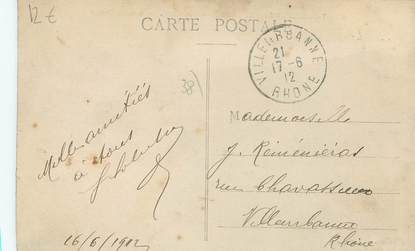 12 €
CARTE POSTALE
VILLEURBANNE
21
17-6
12
RHONE
38
Mille amitiés
à tous
16/6/1912
Mademoiselle
J.
rue
Villeurbanne
Rhône